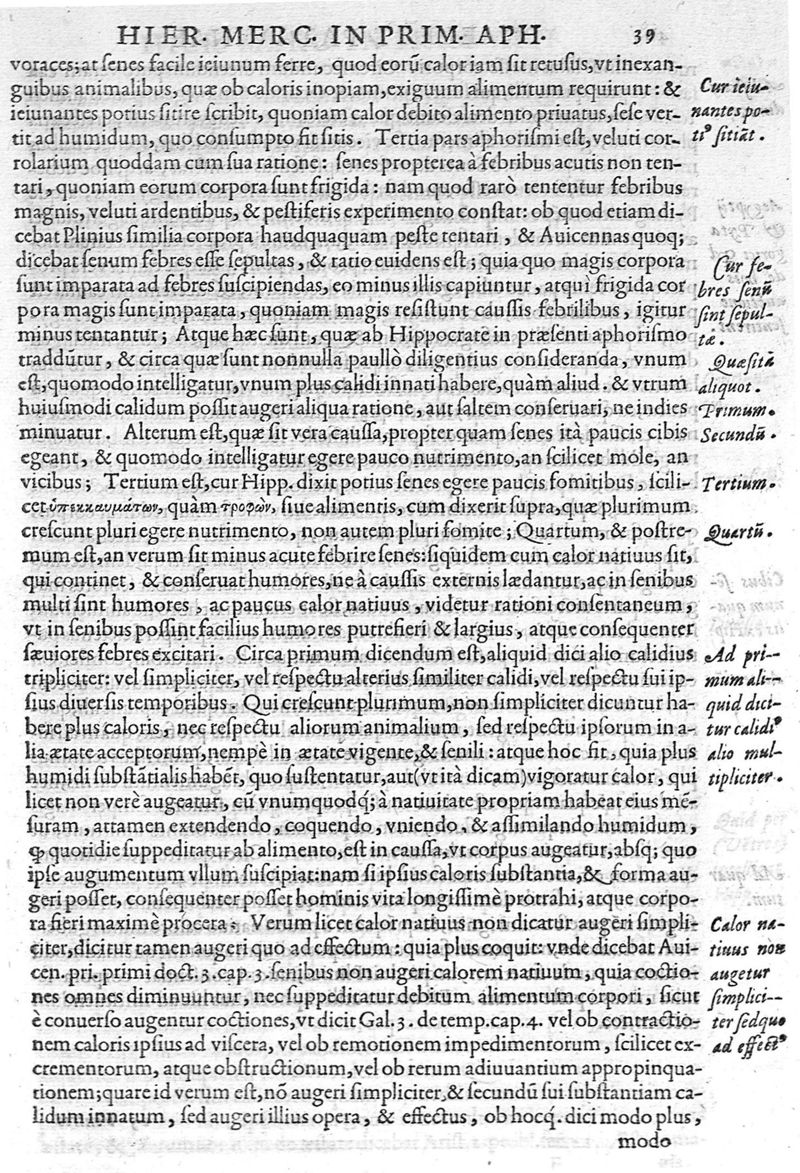 HIER. MERC. IN PRIM. APH. 39
voraces; at senes facile ieiunum ferre, quod eorũ calor iam sit retusus, vt inexan-
guibus animalibus, quæ ob caloris inopiam, exiguum alimentum requirunt: &
ieiunantes potius sitire scribit, quoniam calor debito alimento priuatus, sese ver-
tit ad humidum, quo consumpto fit sitis. Tertia pars aphorismi est, veluti cor-
rolarium quoddam cum sua ratione: senes propterea à febribus acutis non ten-
tari, quoniam eorum corpora sunt frigida: nam quod rarò tententur febribus
magnis, veluti ardentibus, & pestiferis experimento constat: ob quod etiam di-
cebat Plinius similia corpora haudquaquam peste tentari, & Auicennas quoq;
dicebat senum febres esse sepultas, & ratio euidens est; quia quo magis corpora
sunt imparata ad febres suscipiendas, eo minus illis capiuntur, atqui frigida cor
pora magis sunt imparata, quoniam magis resistunt caussis febrilibus, igitur
minus tentantur; Atque hæc sunt, quæ ab Hippocrate in præsenti aphorismo
traddũtur, & circa quæ sunt nonnulla paullò diligentius consideranda, vnum
est, quomodo intelligatur, vnum plus calidi innati habere, quàm aliud. & vtrum
huiusmodi calidum possit augeri aliqua ratione, aut saltem conseruari, ne indies
minuatur. Alterum est, quæ sit vera caussa, propter quam senes ità paucis cibis
egeant, & quomodo intelligatur egere pauco nutrimento, an scilicet mole, an
vicibus; Tertium est, cur Hipp. dixit potius senes egere paucis fomitibus, scili-
cet ὑπεκκαυμάτων, quàm τροφῶν, siue alimentis, cum dixerit supra, quæ plurimum
crescunt pluri egere nutrimento, non autem pluri fomite; Quartum, & postre-
mum est, an verum sit minus acute febrire senes: siquidem cum calor natiuus sit,
qui continet, & conseruat humores, ne à caussis externis lædantur, ac in senibus
multi sint humores, ac paucus calor natiuus, videtur rationi consentaneum,
vt in senibus possint facilius humores putrefieri & largius, atque consequenter
sæuiores febres excitari. Circa primum dicendum est, aliquid dici alio calidius
tripliciter: vel simpliciter, vel respectu alterius similiter calidi, vel respectu sui ip-
sius diuersis temporibus. Qui crescunt plurimum, non simpliciter dicuntur ha-
bere plus caloris, nec respectu aliorum animalium, sed respectu ipsorum in a-
lia ætate acceptorum, nempè in ætate vigente, & senili: atque hoc fit, quia plus
humidi substãtialis habẽt, quo sustentatur, aut (vt ità dicam) vigoratur calor, qui
licet non verè augeatur, cũ vnumquodq; à natiuitate propriam habeat eius me-
suram, attamen extendendo, coquendo, vniendo, & assimilando humidum,
ꝙ quotidie suppeditatur ab alimento, est in caussa, vt corpus augeatur, absq; quo
ipse augumentum vllum suscipiat: nam si ipsius caloris substantia, & forma au-
geri posset, consequenter posset hominis vita longissimè protrahi, atque corpo-
ra fieri maximè procera. Verum licet calor natiuus non dicatur augeri simpli-
citer, dicitur tamen augeri quo ad effectum: quia plus coquit: vnde dicebat Aui-
cen. pri. primi doct. 3. cap. 3. senibus non augeri calorem natiuum, quia coctio-
nes omnes diminuuntur, nec suppeditatur debitum alimentum corpori, sicut
è conuerso augentur coctiones, vt dicit Gal. 3. de temp. cap. 4. vel ob contractio-
nem caloris ipsius ad viscera, vel ob remotionem impedimentorum, scilicet ex-
crementorum, atque obstructionum, vel ob rerum adiuuantium appropinqua-
tionem; quare id verum est, nõ augeri simpliciter, & secundũ sui substantiam ca-
lidum innatum, sed augeri illius opera, & effectus, ob hocq. dici modo plus,
modo
Cur ieiu-
nantes po-
tiꝰ sitiãt.
Cur fe-
bres senũ
sint sepul-
tæ.
Quæsita
aliquot.
Primum.
Secundũ.
Tertium.
Quartũ.
Ad pri-
mum ali-
quid dici-
tur calidiꝰ
alio mul-
tipliciter.
Calor na-
tiuus non
augetur
simplici-
ter sed quo
ad effectꝰ